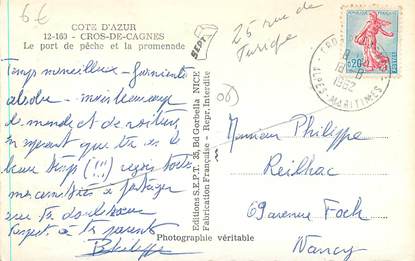 6€
COTE D'AZUR
12-163 - CROS-DE-CAGNES
Le port de pêche et la promenade
SEPT
25 rue de
Turique
Temps merveilleux - farniente
absolu - mais beaucoup
de monde et de voitures
en esperant que tu as le
beau temps (!!!)
mes amitiés à partager
avec ta
Respect à tes parents
Philippe
Editions S.E.P.T. 35, Bd Gorbella NICE
Fabrication Française - Repr. Interdite
Photographie véritable
(06)
REPUBLIQUE FRANÇAISE
0,20
POSTES
18 -8
1962
ALPES-MARITIMES
Monsieur Philippe
Reilhac
69 avenue Foch
Nancy